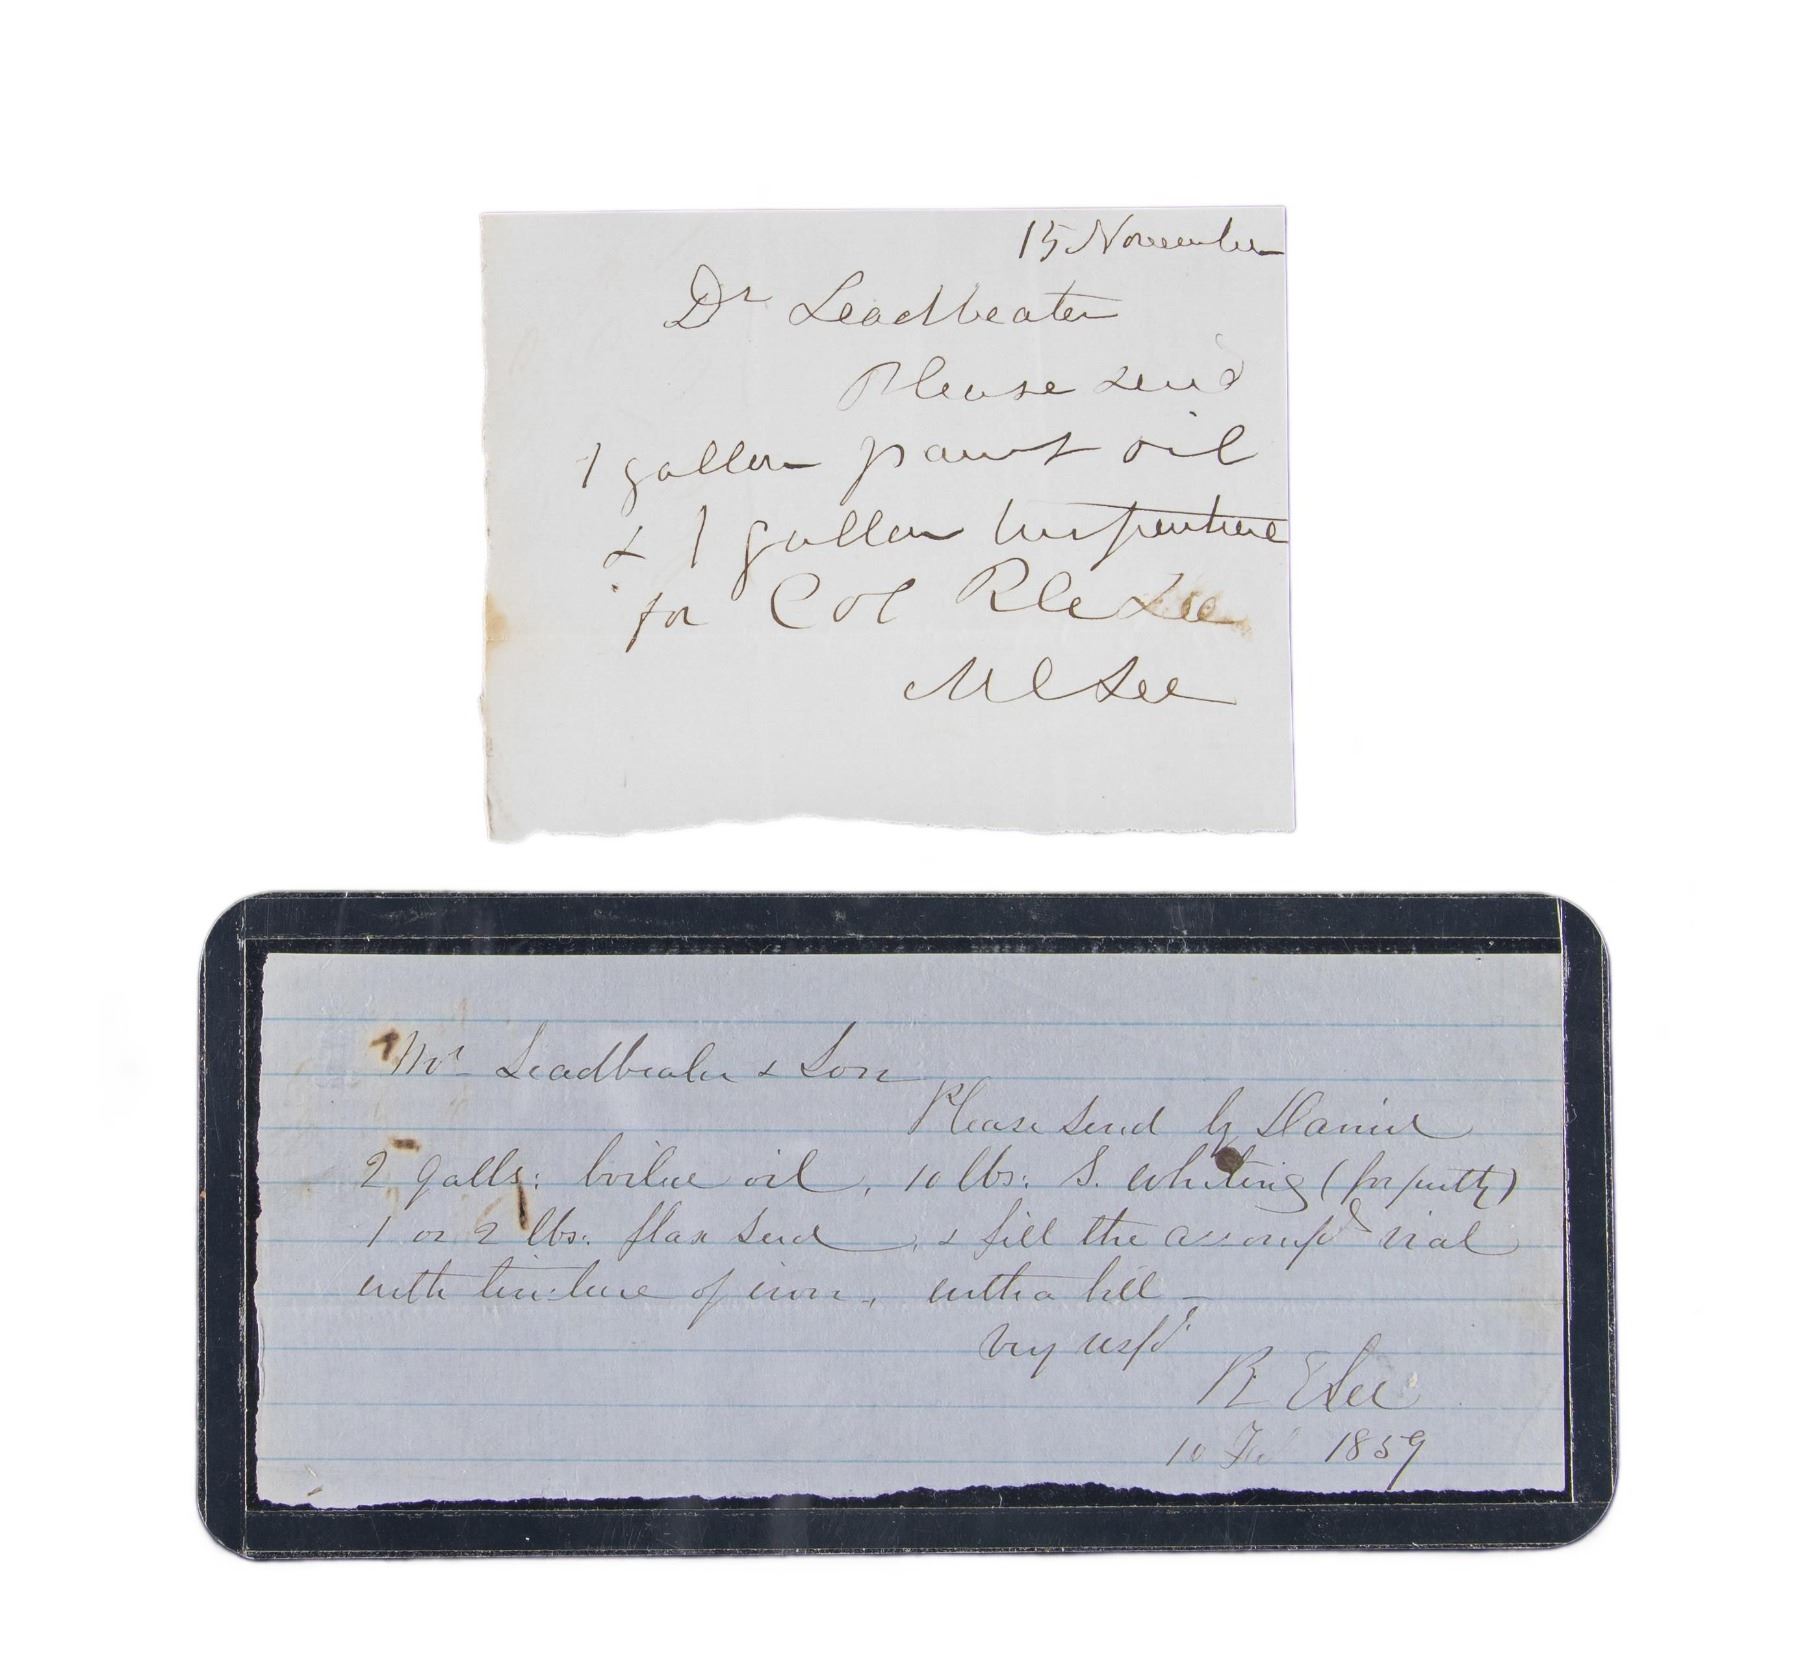 15 November
Dr Leadbeater
Please send
1 gallon paint oil
& 1 gallon turpentine
for Col R E Lee
M C Lee
Mr Leadbeater & Son
Please send by Daniel
2 galls: boiled oil, 10 lbs: S. whiting (for putty)
1 or 2 lbs: flax seed, & fill the accompd vial
with tincture of iron, with a bill -
Very respd
R E Lee
10 Feb 1859